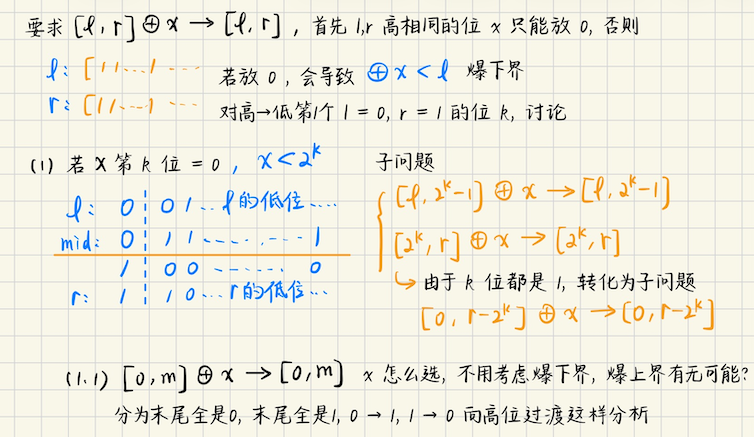 要求 [l, r] ⊕ x → [l, r] , 首先 l,r 高相同的位 x 只能放 0, 否则
l: [ 1 1 ... 1 ... 若放 0 , 会导致 ⊕ x < l 爆下界
r: [ 1 1 ... 1 ... 对高→低第1个 l = 0, r = 1 的位 k, 讨论
(1) 若 x 第 k 位 = 0 , x < 2^k 子问题
l: 0 0 1 ... l 的低位 ... [l, 2^k-1] ⊕ x → [l, 2^k-1]
mid: 0 1 1 ... 1 [2^k, r] ⊕ x → [2^k, r]
1 0 0 ... 0 ↳ 由于 k 位都是 1, 转化为子问题
r: 1 1 0 ... r 的低位 ... [0, r-2^k] ⊕ x → [0, r-2^k]
(1.1) [0, m] ⊕ x → [0, m] x 怎么选, 不用考虑爆下界, 爆上界有无可能?
分为末尾全是0, 末尾全是1, 0 → 1, 1 → 0 向高位过渡这样分析